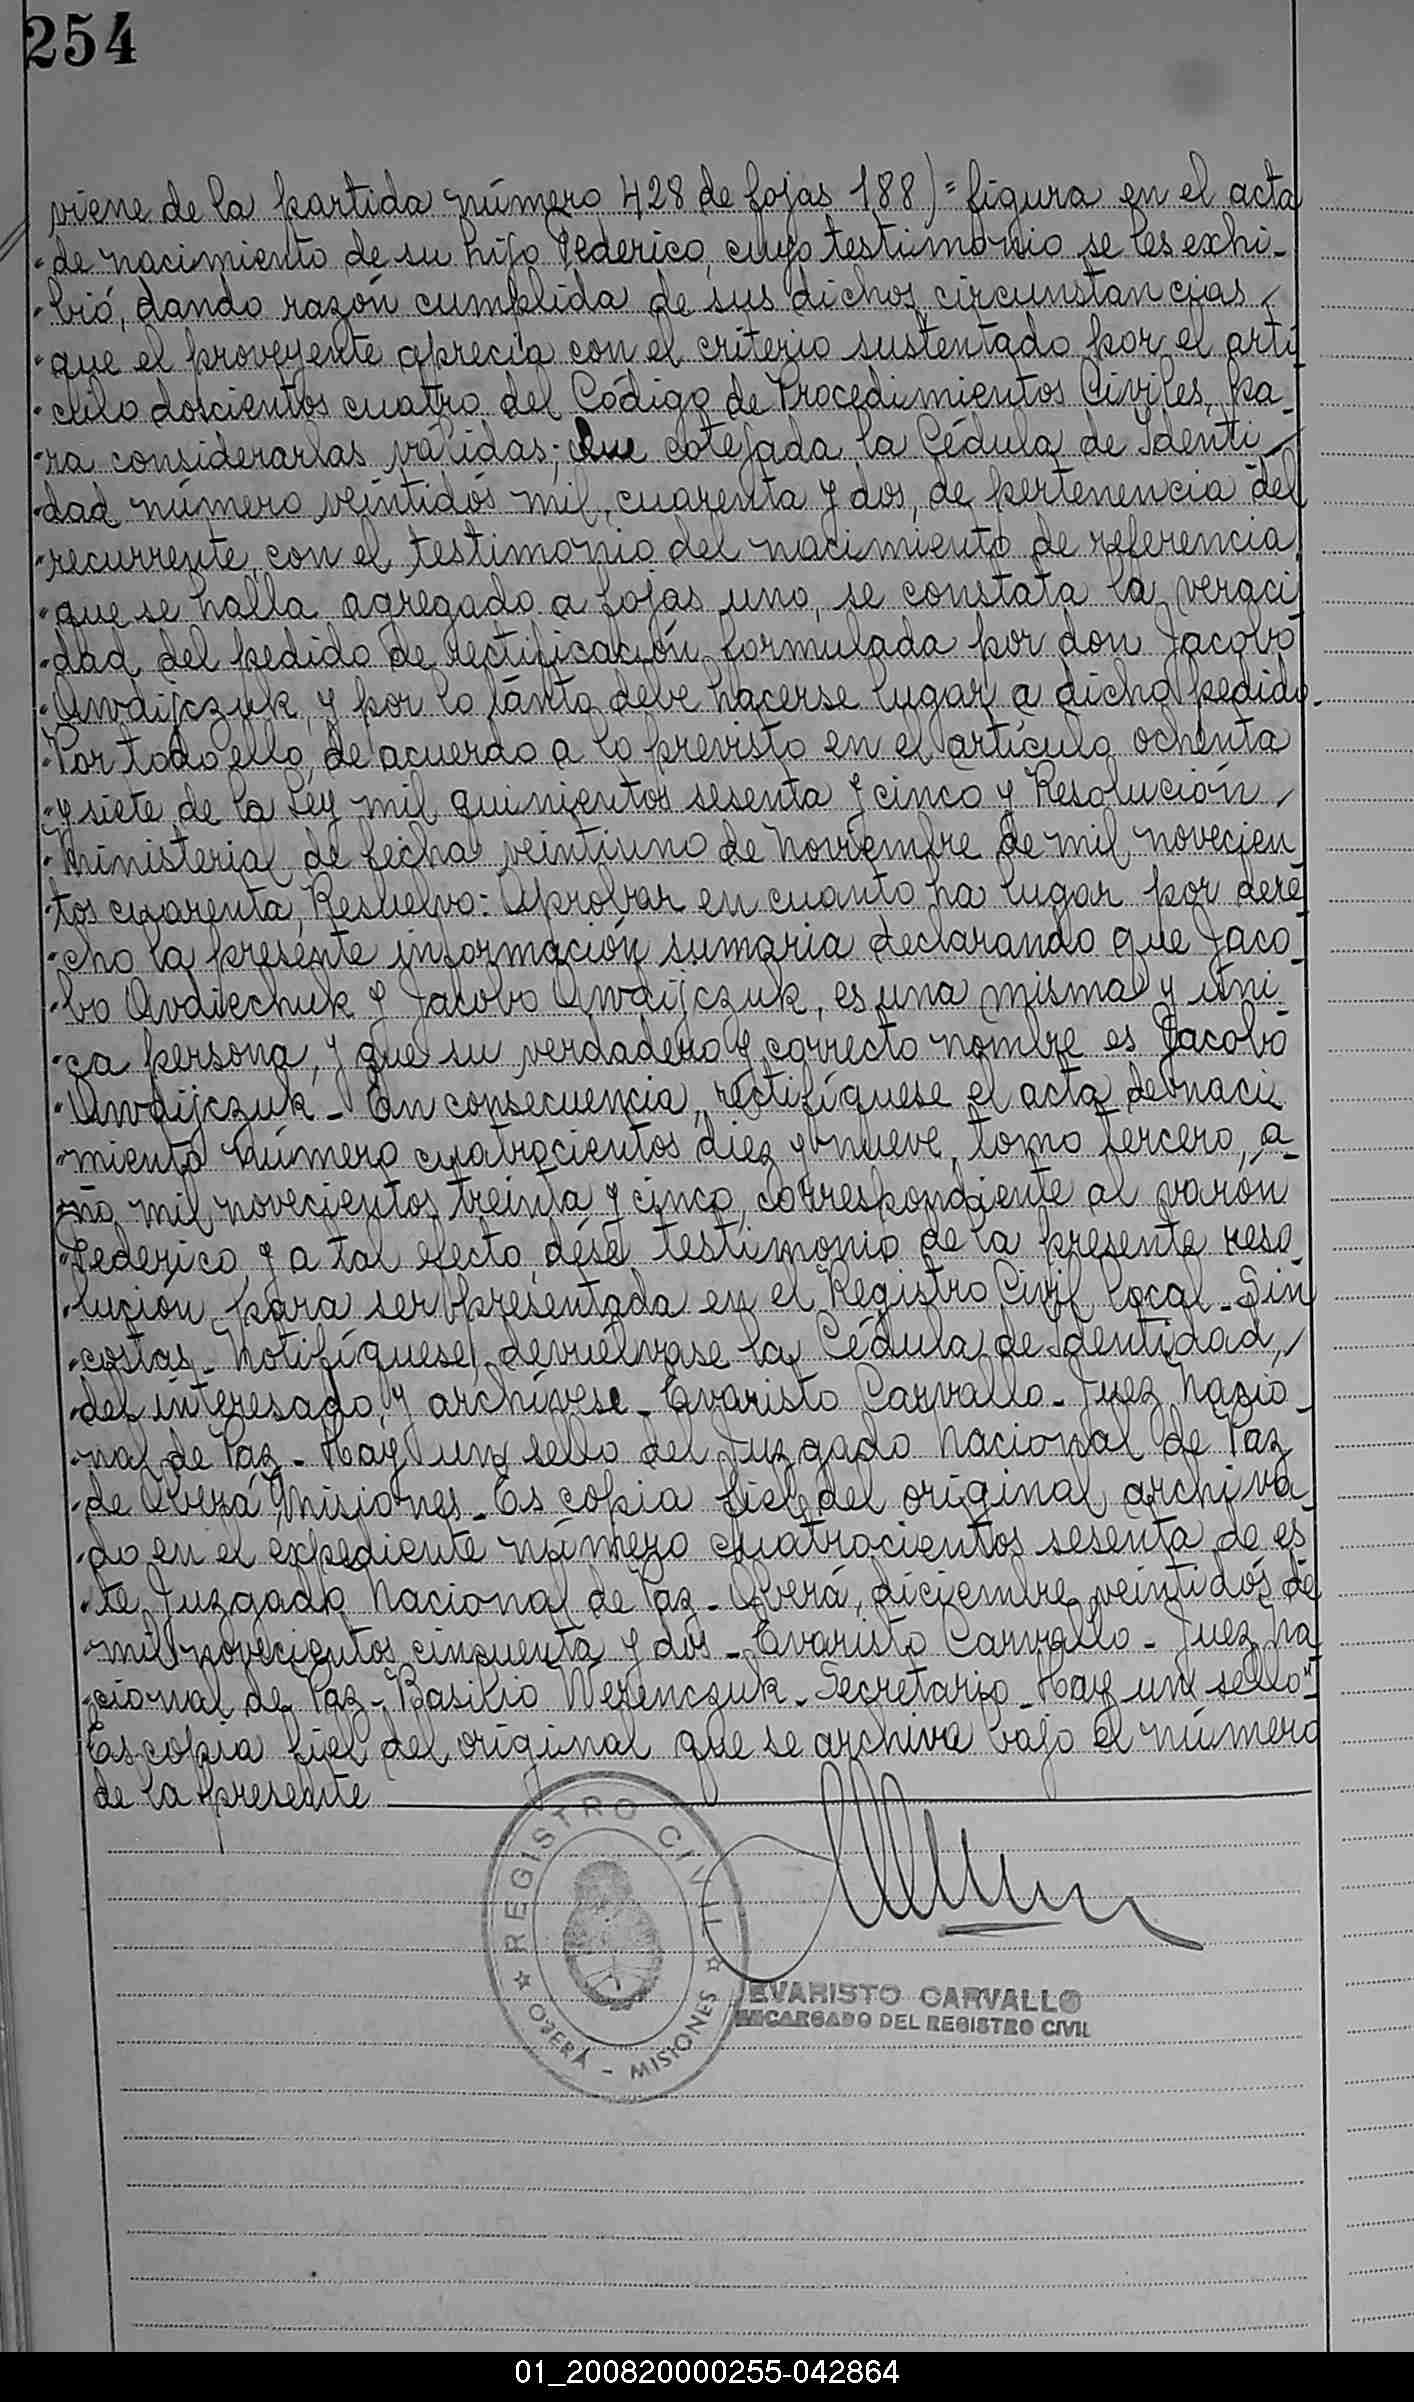 254
viene de la partida número 428 de fojas 188)= figura en el acta
"de nacimiento de su hijo Federico, cuyo testimonio se les exhi-
"bió, dando razón cumplida de sus dichos, circunstancias
"que el proveyente aprecia con el criterio sustentado por el artí
"culo doscientos cuatro del Código de Procedimientos Civiles, pa-
"ra considerarlas válidas; Que cotejada la Cédula de Identi
"dad número veintidós mil, cuarenta y dos, de pertenencia del
"recurrente, con el testimonio del nacimiento de referencia,
"que se halla agregado a fojas uno, se constata la veraci
"dad del pedido de rectificación formulada por don Jacobo
"Awdijczuk, y por lo tanto debe hacerse lugar a dicho pedido.
"Por todo ello, de acuerdo a lo previsto en el artículo ochenta
"y siete de la Ley mil quinientos sesenta y cinco y Resolución
"Ministerial de fecha veintiuno de Noviembre de mil novecien
"tos cuarenta, Resuelvo: Aprobar en cuanto ha lugar por dere
"cho la presente información sumaria declarando que Jaco-
"bo Avdiechuk y Jacobo Awdijczuk, es una misma y úni
"ca persona, y que su verdadero y correcto nombre es Jacobo
"Awdijczuk - En consecuencia, rectifíquese el acta de naci
"miento número cuatrocientos diez y nueve, tomo tercero, a-
"ño mil novecientos treinta y cinco, correspondiente al varón
"Federico, y a tal efecto, dése testimonio de la presente reso
"lución para ser presentada en el Registro Civil local - Sin
"costas - Notifíquese, devuélvase la Cédula de Identidad,
"del interesado, y archívese - Evaristo Carvallo - Juez Nacio
"nal de Paz - Hay un sello del Juzgado Nacional de Paz
"de Oberá, Misiones - Es copia fiel del original archiva
"do en el expediente número cuatrocientos sesenta de es
"te Juzgado Nacional de Paz - Oberá, diciembre veintidós de
"mil novecientos cincuenta y dos - Evaristo Carvallo - Juez Na
"cional de Paz - Basilio Werenczuk - Secretario - Hay un sello"-
Es copia fiel del original que se archiva bajo el número
de la presente
REGISTRO CIVIL
OBERÁ - MISIONES
EVARISTO CARVALLO
ENCARGADO DEL REGISTRO CIVIL
01_200820000255-042864